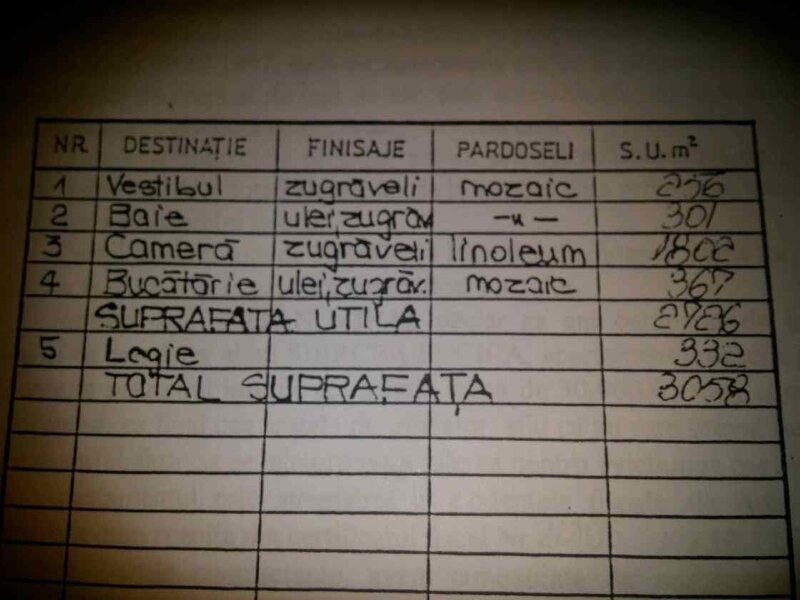 NR DESTINAȚIE FINISAJE PARDOSELI S.U.m²
1 Vestibul zugrăveli mozaic 256
2 Baie ulei,zugrăv -u- 301
3 Cameră zugrăveli linoleum 1802
4 Bucătărie ulei,zugrăv. mozaic 367
SUPRAFAȚA UTILA 2726
5 Logie 332
TOTAL SUPRAFAȚA 3058